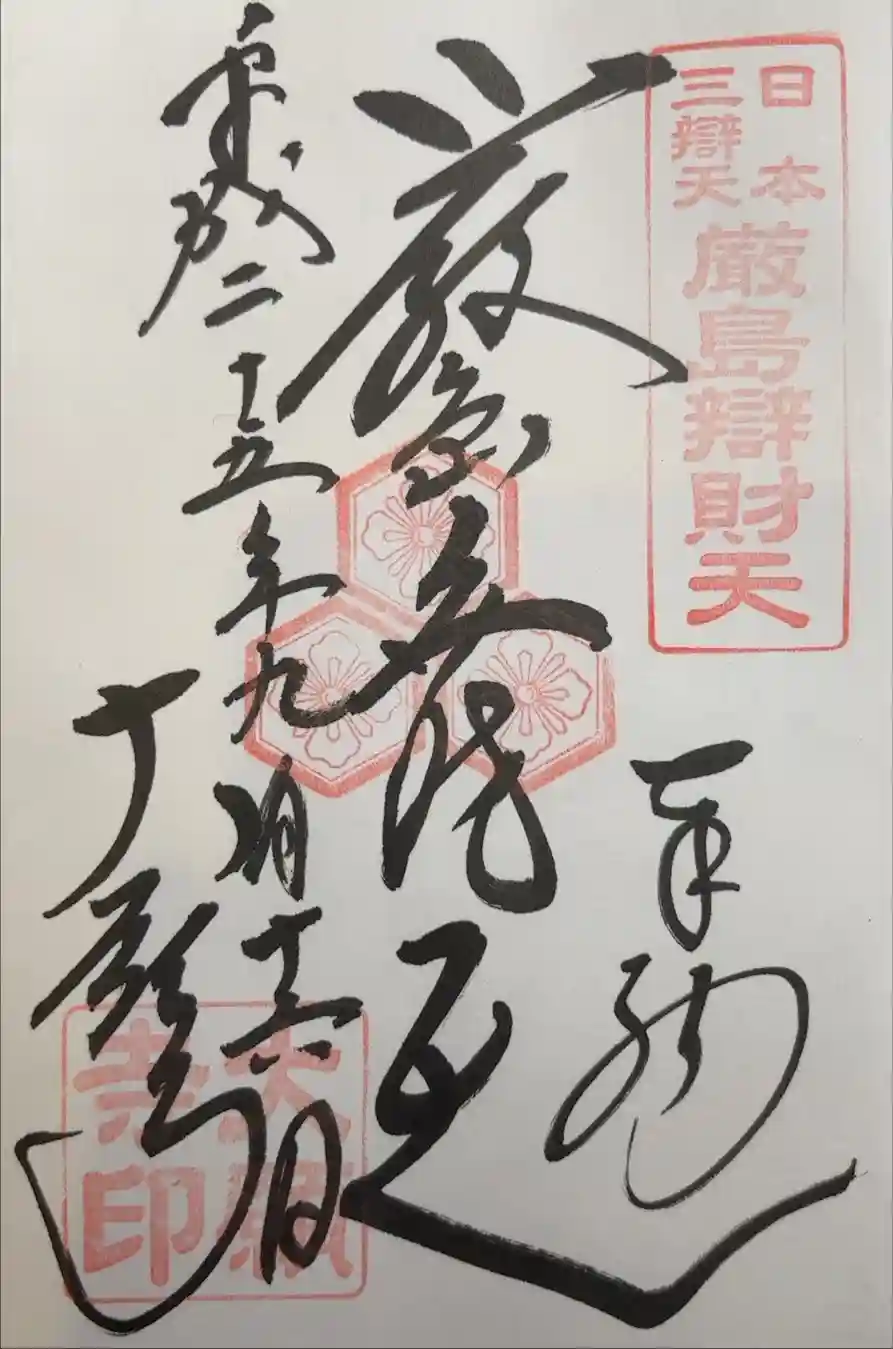 日本
三辯天
厳島辯財天
奉拝
厳島弁財天
平成二十五年九月十六日
大願寺
大願寺印